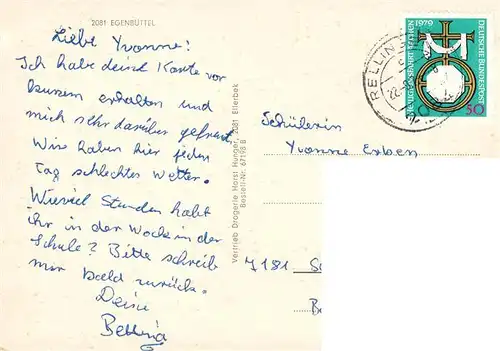 2081 EGENBÜTTEL
Liebe Yvonne!
Ich habe deine Karte vor
kurzem erhalten und
mich sehr darüber gefreut.
Wir haben hier jeden
Tag schlechtes Wetter.
Wieviel Stunden habt
ihr in der Woche in der
Schule? Bitte schreib
mir bald zurück.
Deine
Bettina
Vertrieb Drogerie Horst Hunger, 2081 Ellerbek
Bestell-Nr. 67198 B
RELLIN
1979
DEUTSCHE BUNDESPOST
50
Schülerin
Yvonne Erben
7181